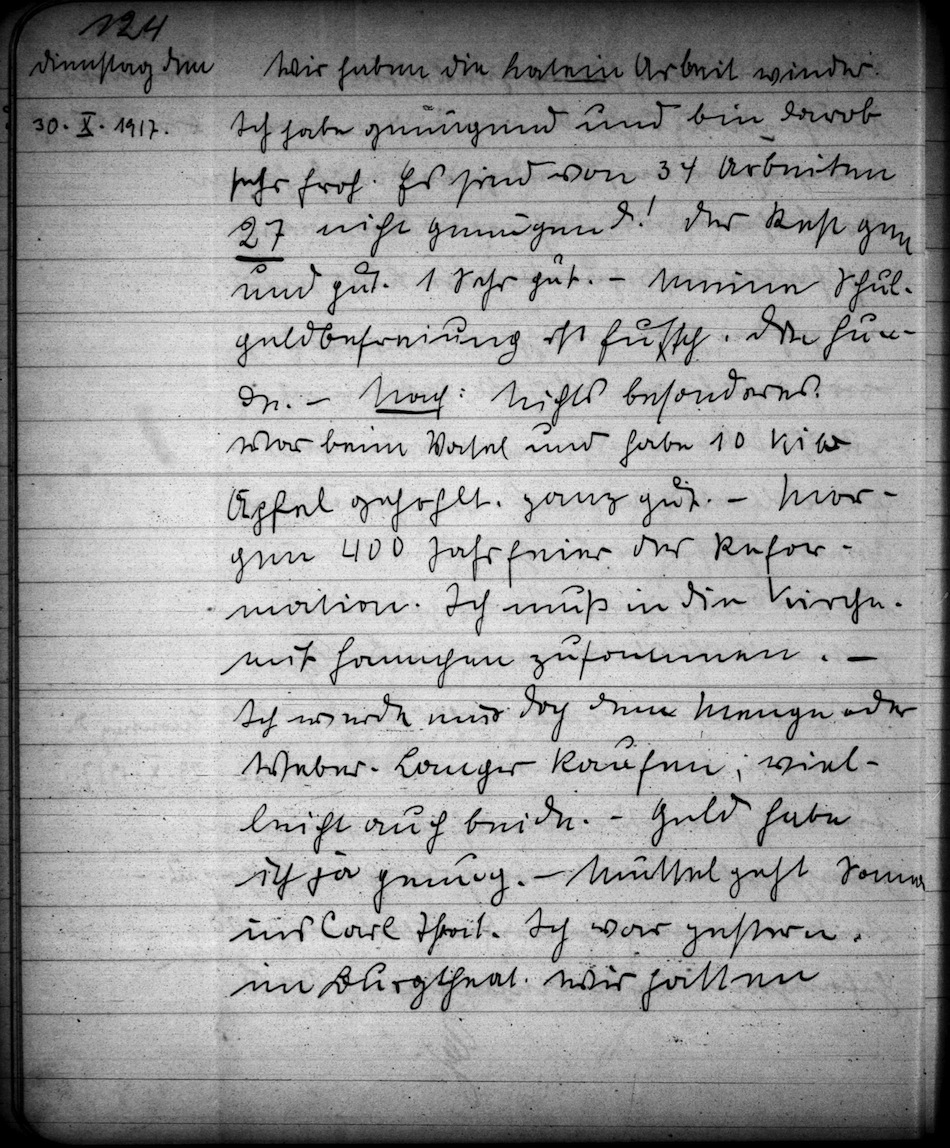 124
Dienstag den Wir haben die Latein Arbeit wieder.
30. X. 1917. Ich habe genügend und bin darob
sehr froh. Es sind von 34 Arbeiten
27 nicht genügend! Der Rest gen
und gut. 1 Sehr gut. – Meine Schul-
geldbefreiung ist futsch. Die Hun-
de. – Nach: Nichts besonderes.
War beim Vasel und habe 10 Kilo
Äpfel gehohlt. ganz gut. – Mor-
gen 400 Jahrfeier der Refor-
mation. Ich muß in die Kirche.
mit Hannchen zusammen. –
Ich werde mir doch den Menge oder
Weber-Langer kaufen, viel-
leicht auch beide. – Geld habe
ich ja genug. – Muttel geht
ins Carl Theat. Ich war gestern.
im Burgtheat. Wir hatten